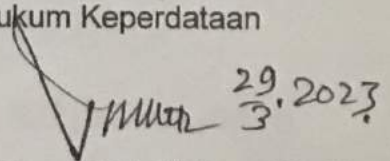 ukum Keperdataan
29/3. 2023